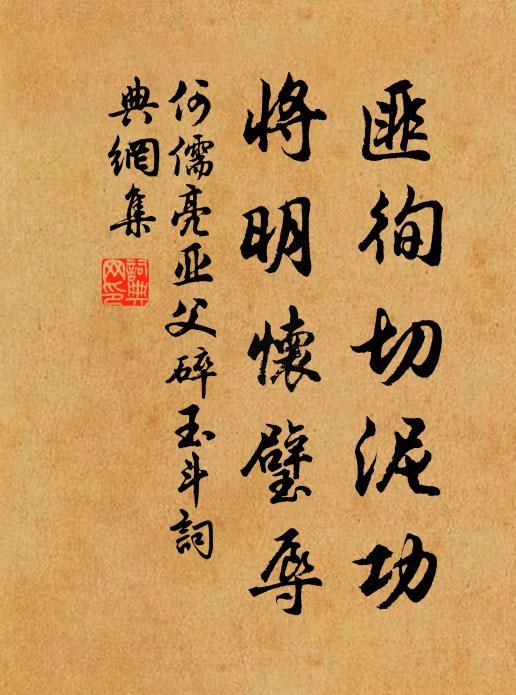 匪徇切泥功
將明懷璧辱
何儒亮亚父碎玉斗詞
典網集
詞典
网印